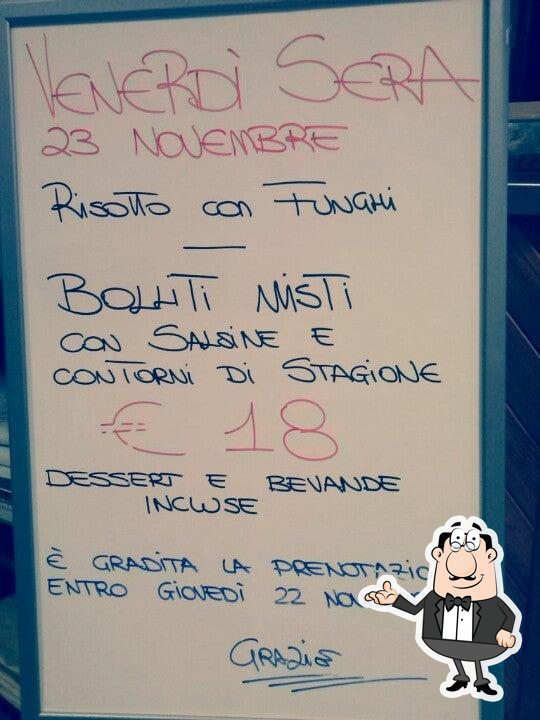 VENERDÌ SERA
23 NOVEMBRE
RISOTTO CON FUNGHI
BOLLITI MISTI
CON SALSINE E
CONTORNI DI STAGIONE
€ 18
DESSERT E BEVANDE
INCLUSE
È GRADITA LA
ENTRO GIOVEDÌ 22
GRAZIE